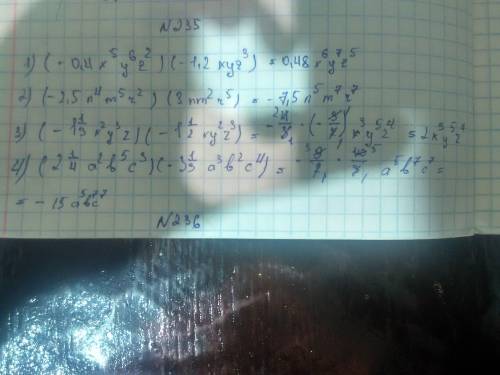 N235
1) (-0,4x⁵y⁶z²)(-1,2xyz³) = 0,48x⁶y⁷z⁵
2) (-2,5n⁴m⁵r²)(3nm²r⁵) = -7,5n⁵m⁷r⁷
3) (-1 1/3 x²y³z)(-1 1/2 xy²z³) = 2x³y⁵z⁴
4) (2 1/4 a²b⁵c³)(-3 1/3 a³b²c⁴) = a⁵b⁷c⁷ =
= -15a⁵b⁷c⁷
N236